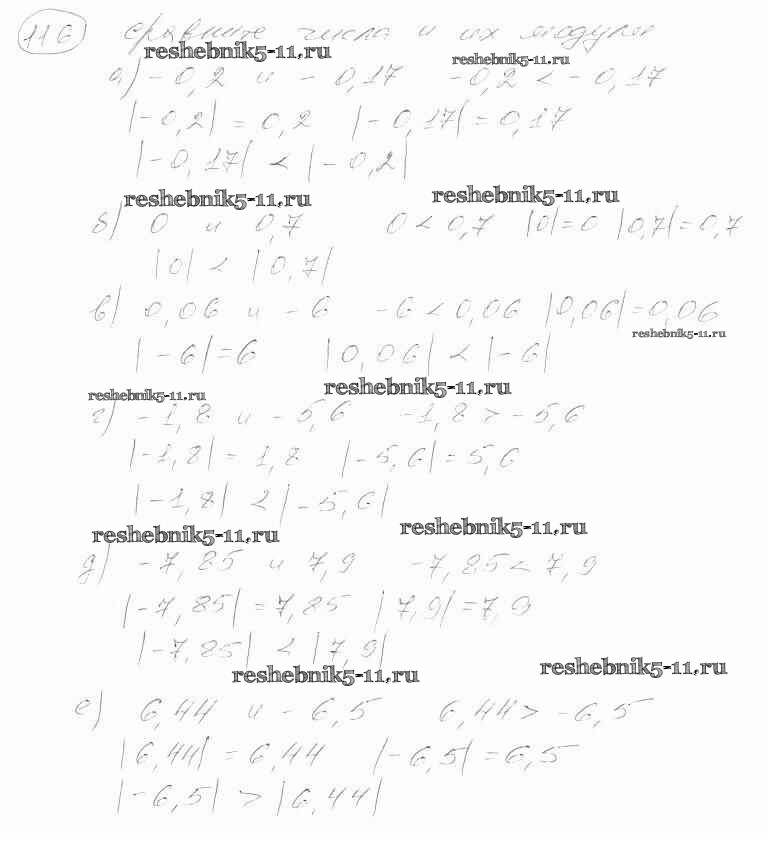 116 сравните числа и их модули
reshebnik5-11.ru reshebnik5-11.ru
а) -0,2 и -0,17 -0,2 < -0,17
|-0,2| = 0,2 |-0,17| = 0,17
|-0,17| < |-0,2|
reshebnik5-11.ru reshebnik5-11.ru
б) 0 и 0,7 0 < 0,7 |0| = 0 |0,7| = 0,7
|0| < |0,7|
в) 0,06 и -6 -6 < 0,06 |0,06| = 0,06
reshebnik5-11.ru
|-6| = 6 |0,06| < |-6|
reshebnik5-11.ru reshebnik5-11.ru
г) -1,8 и -5,6 -1,8 > -5,6
|-1,8| = 1,8 |-5,6| = 5,6
|-1,8| < |-5,6|
reshebnik5-11.ru reshebnik5-11.ru
д) -7,85 и 7,9 -7,85 < 7,9
|-7,85| = 7,85 |7,9| = 7,9
|-7,85| < |7,9|
reshebnik5-11.ru reshebnik5-11.ru
е) 6,44 и -6,5 6,44 > -6,5
|6,44| = 6,44 |-6,5| = 6,5
|-6,5| > |6,44|